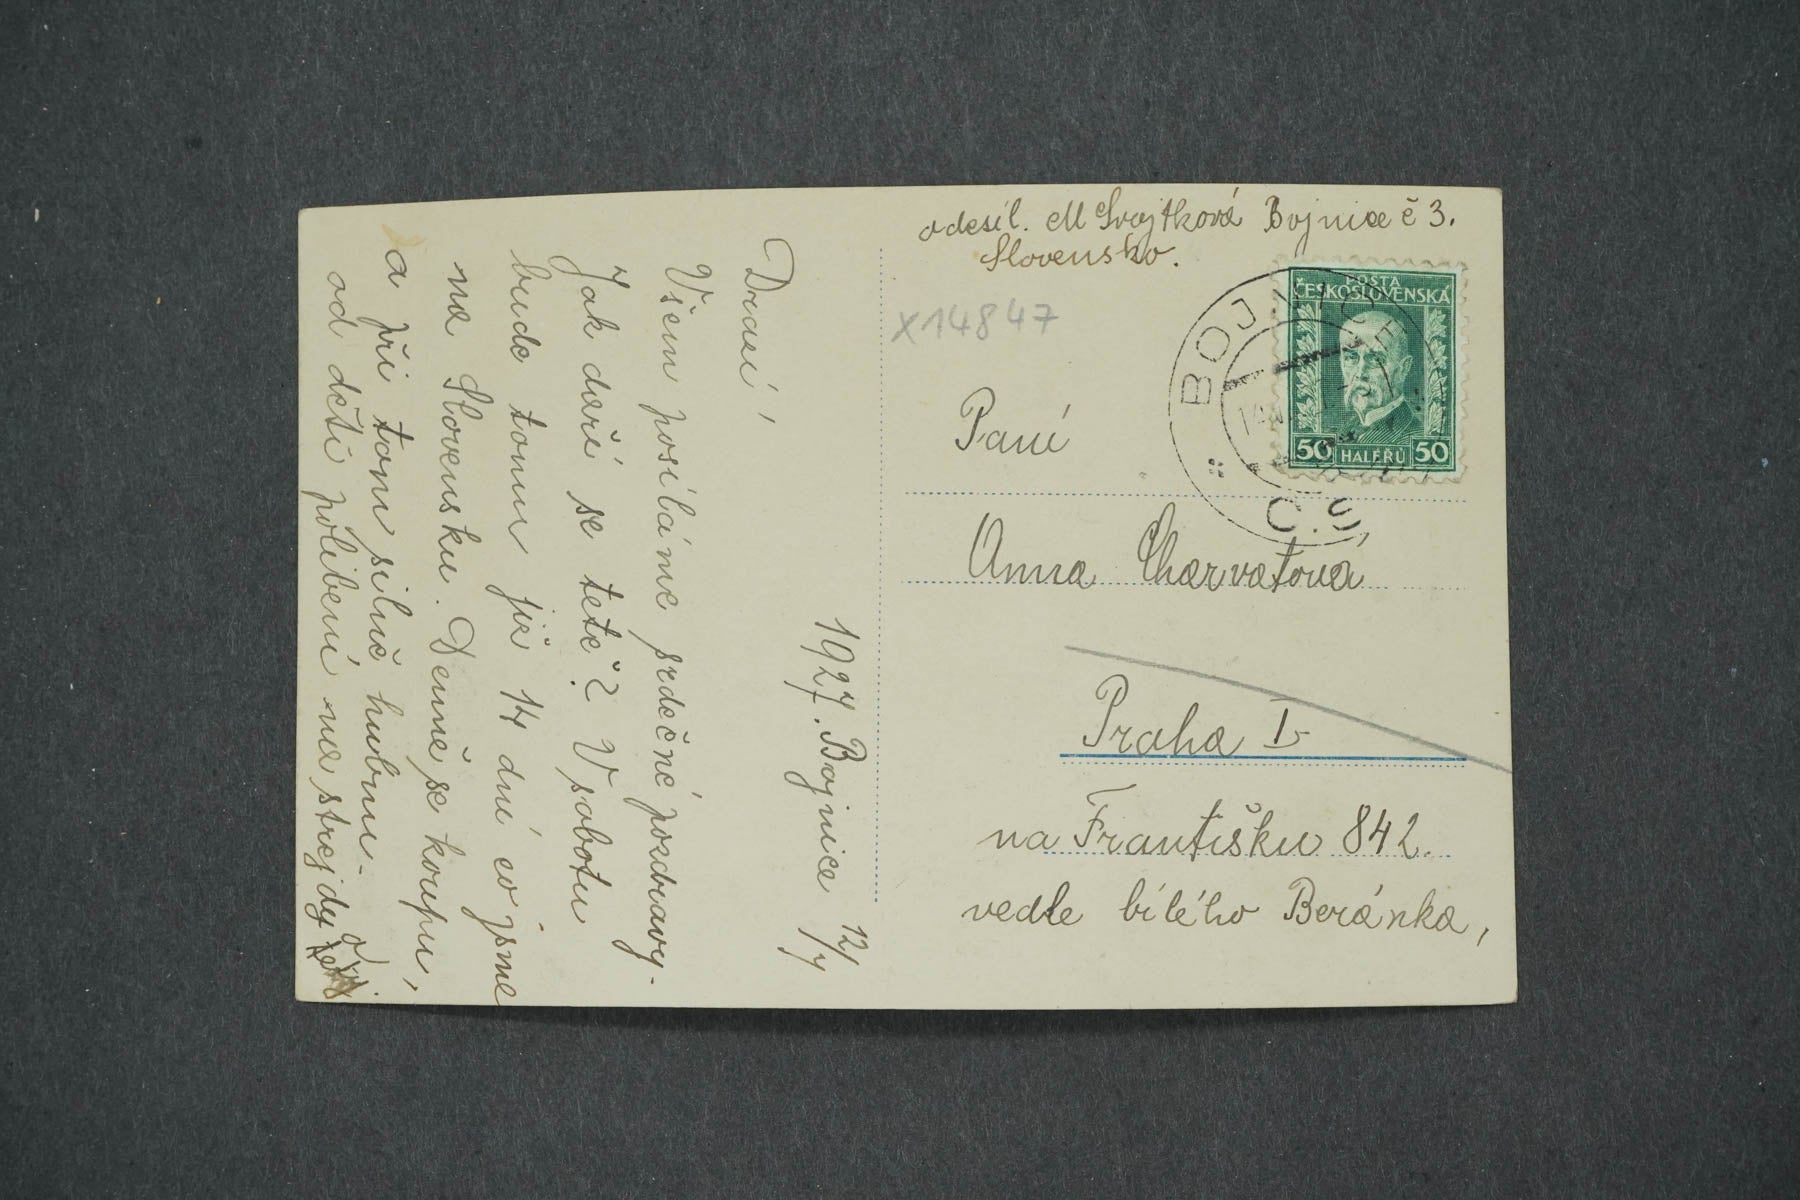 odesíl. M Svojtková Bojnice č 3.
Slovensko.
x14847
POŠTA
ČESKOSLOVENSKÁ
50 HALÉŘŮ 50
BOJNICE
Č.S.
Paní
Anna Charvatová
Praha I
na Františku 842.
vedle bílého Beránka,
1927. Bojnice 12/7
Drazí!
Všem posíláme srdečné pozdravy.
Jak daří se tetě? V sobotu
bude tomu již 14 dní co jsme
na Slovensku. Denně se koupu,
a při tom silně hubnu.
od dětí políbení na strejdy a